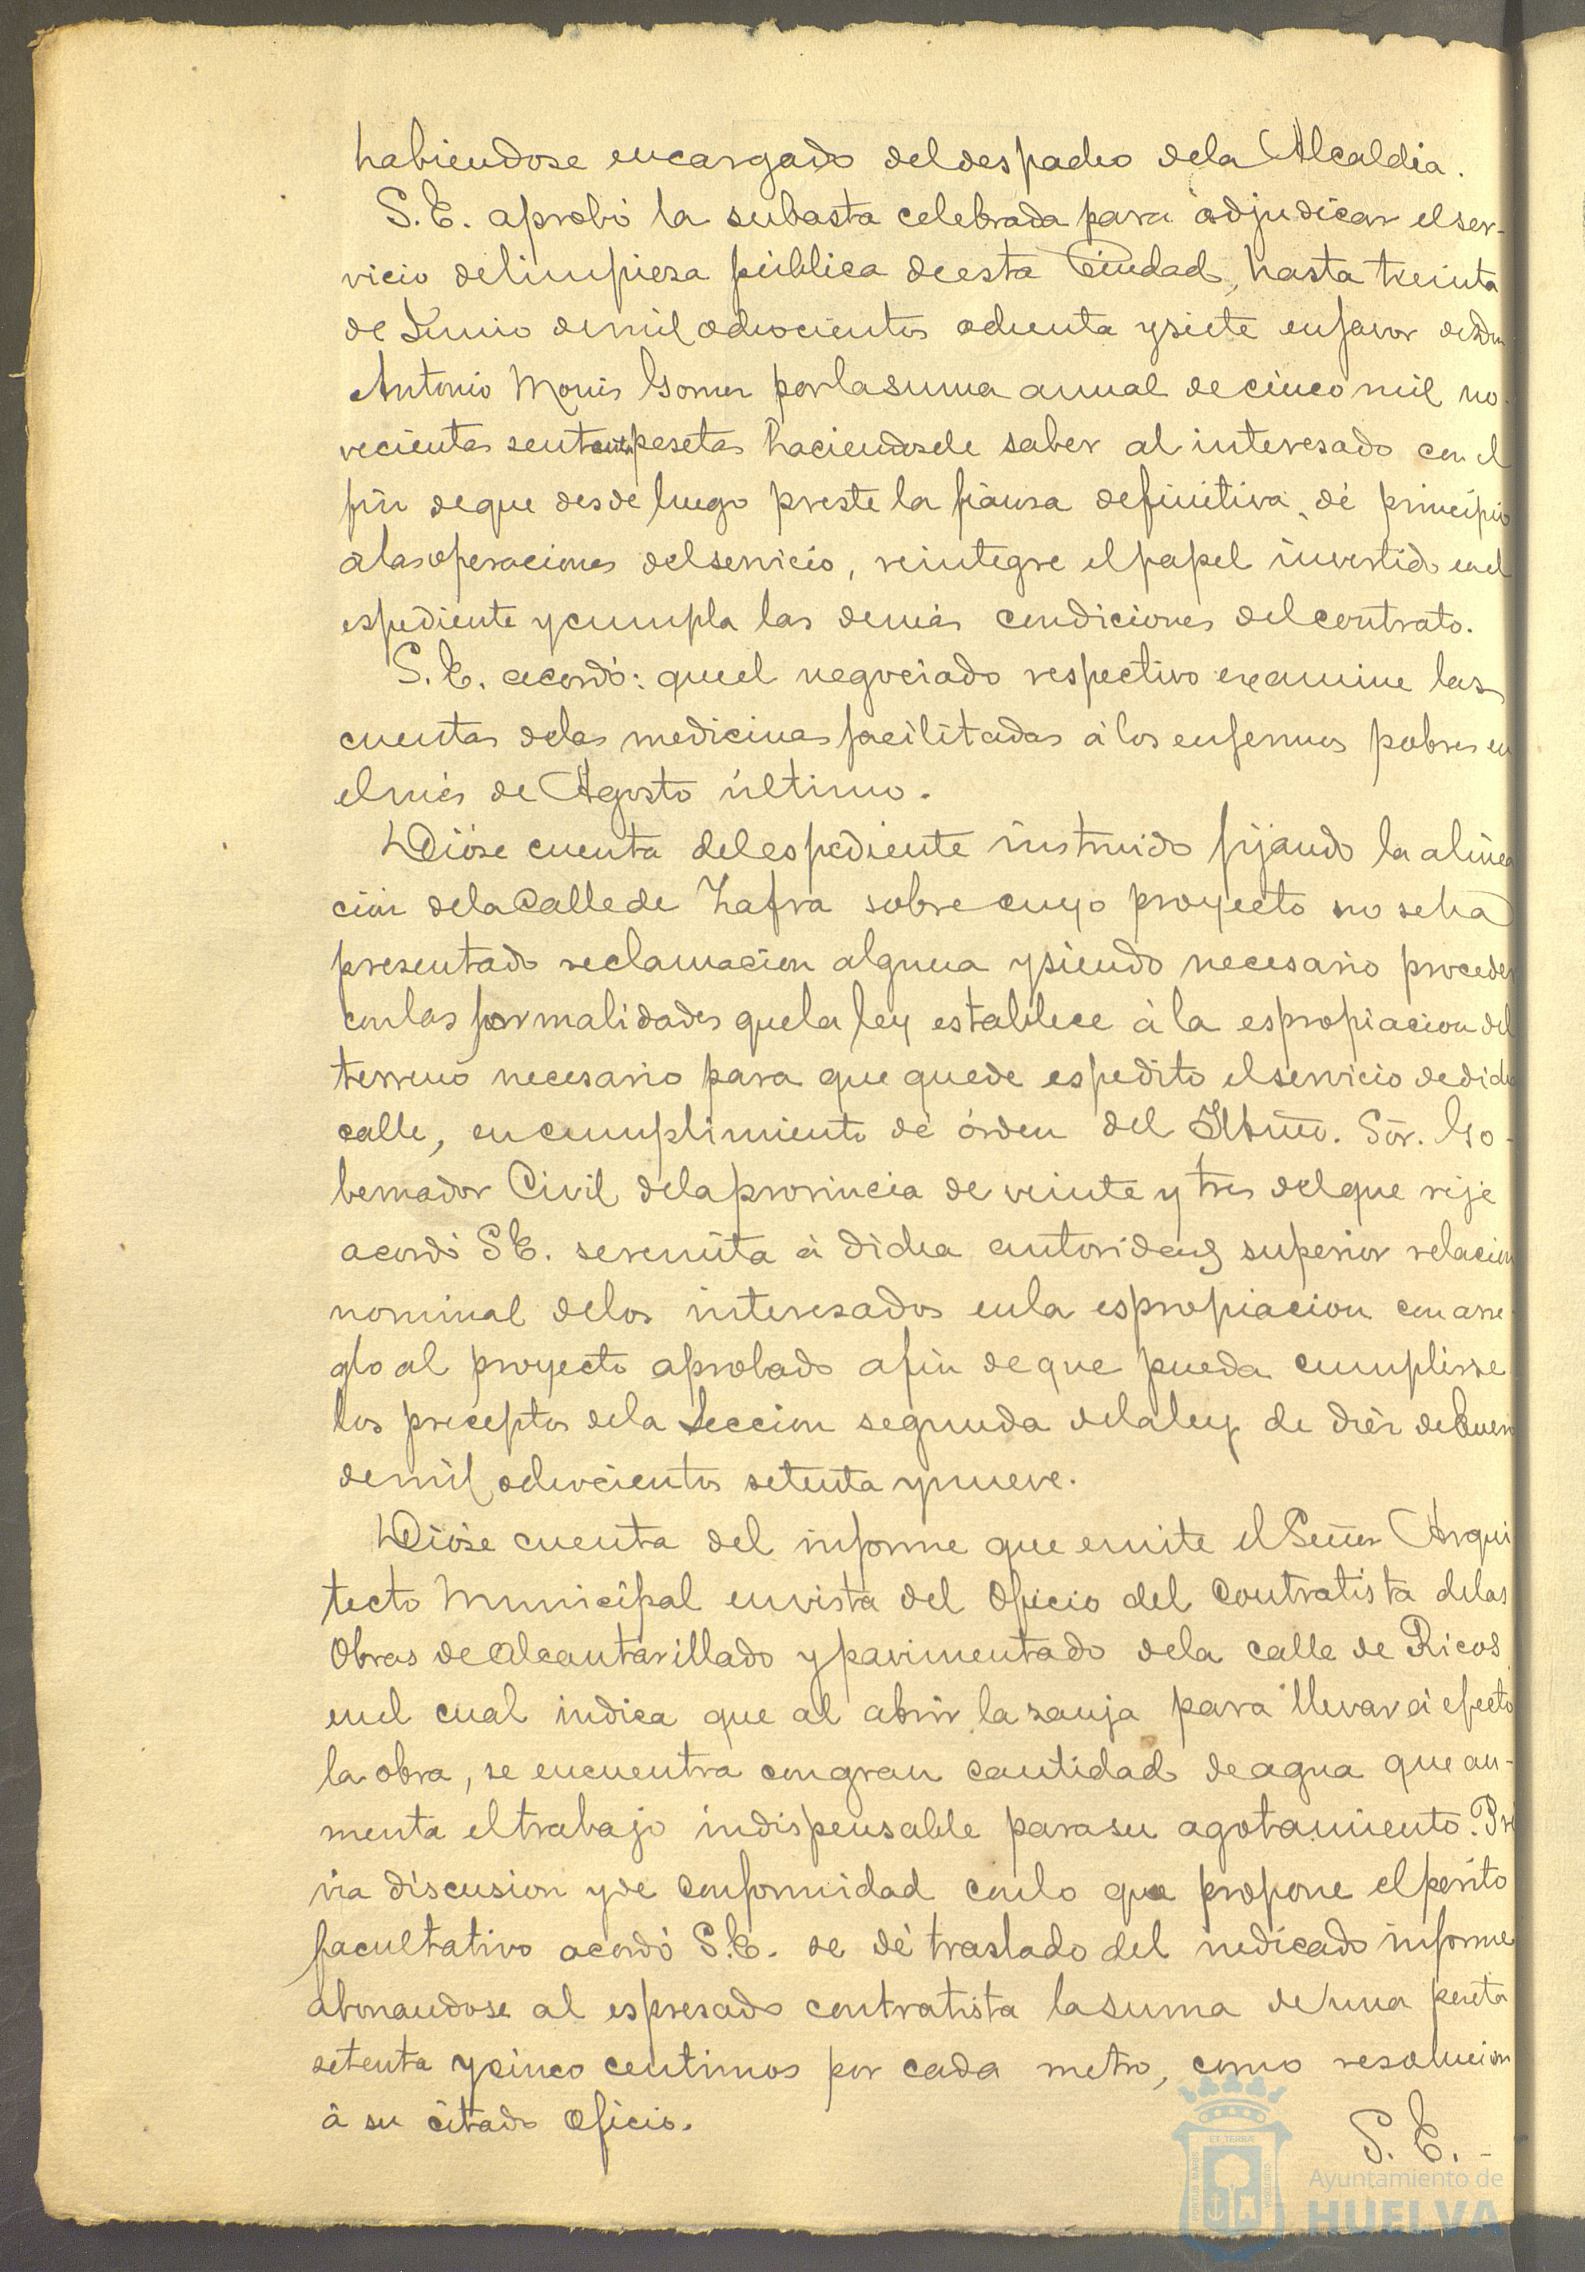 habiendose encargado del despacho dela Alcaldia.
S. E. aprobó la subasta celebrada para adjudicar elser-
vicio delimpieza pública deesta Ciudad, hasta treinta
de Junio demil ochocientos ochenta ysiete enfavor dedon
Antonio Monis Gomez porlasuma anual de cinco mil no-
vecientas pesetas haciendosele saber al interesado con el
fin deque desde luego preste la fianza definitiva, dé principio
alasoperaciones delservicio, reintegre elpapel invertido enel
espediente ycumpla las demás condiciones delcontrato.
S. E. acordó: queel negociado respectivo examine las
cuentas delas medicinas facilitadas á los enfermos pobres en
elmés de Agosto último.
Dióse cuenta delespediente instruido fijando la alinea
ción delaCallede Zafra sobrecuyo proyecto no seha
presentado reclamacion alguna ysiendo necesario proceder
conlas formalidades quelaley establece á la espropiacion del
terreno necesario para que quede espedito elservicio dedicha
calle, encumplimiento de órden del Iltmo. Sör. Go-
bernador Civil delaprovincia de veinte y tres delque rije
acordó S E. seremita á dicha autoridad superior relacion
nominal delos interesados enla espropiacion con arre-
glo al proyecto aprobado afin deque pueda cumplirse
los preceptos dela Seccion segunda delaley de diéz deEnero
demil ochocientos setenta ynueve.
Dióse cuenta del informe que emite el Señor Arqui
tecto Municipal envista del Oficio del Contratista delas
Obras deAlcantarillado ypavimentado dela calle de Ricos
enel cual indica que al abrir la zanja para llevar á efecto
la obra, se encuentra congran cantidad deagua que au-
menta eltrabajo indispensable parasu agotamiento. Pré
via discusion yde conformidad conlo que propone elperito
facultativo acordó S. E. se dé traslado del indicado informe
abonandose al espresado contratista lasuma de una peseta
setenta ycinco centimos por cada metro, como resolucion
á su citado Oficio.
S. E. -
ET TERRÆ
PORTUS MARIS
CUSTODIA
Ayuntamiento de
HUELVA